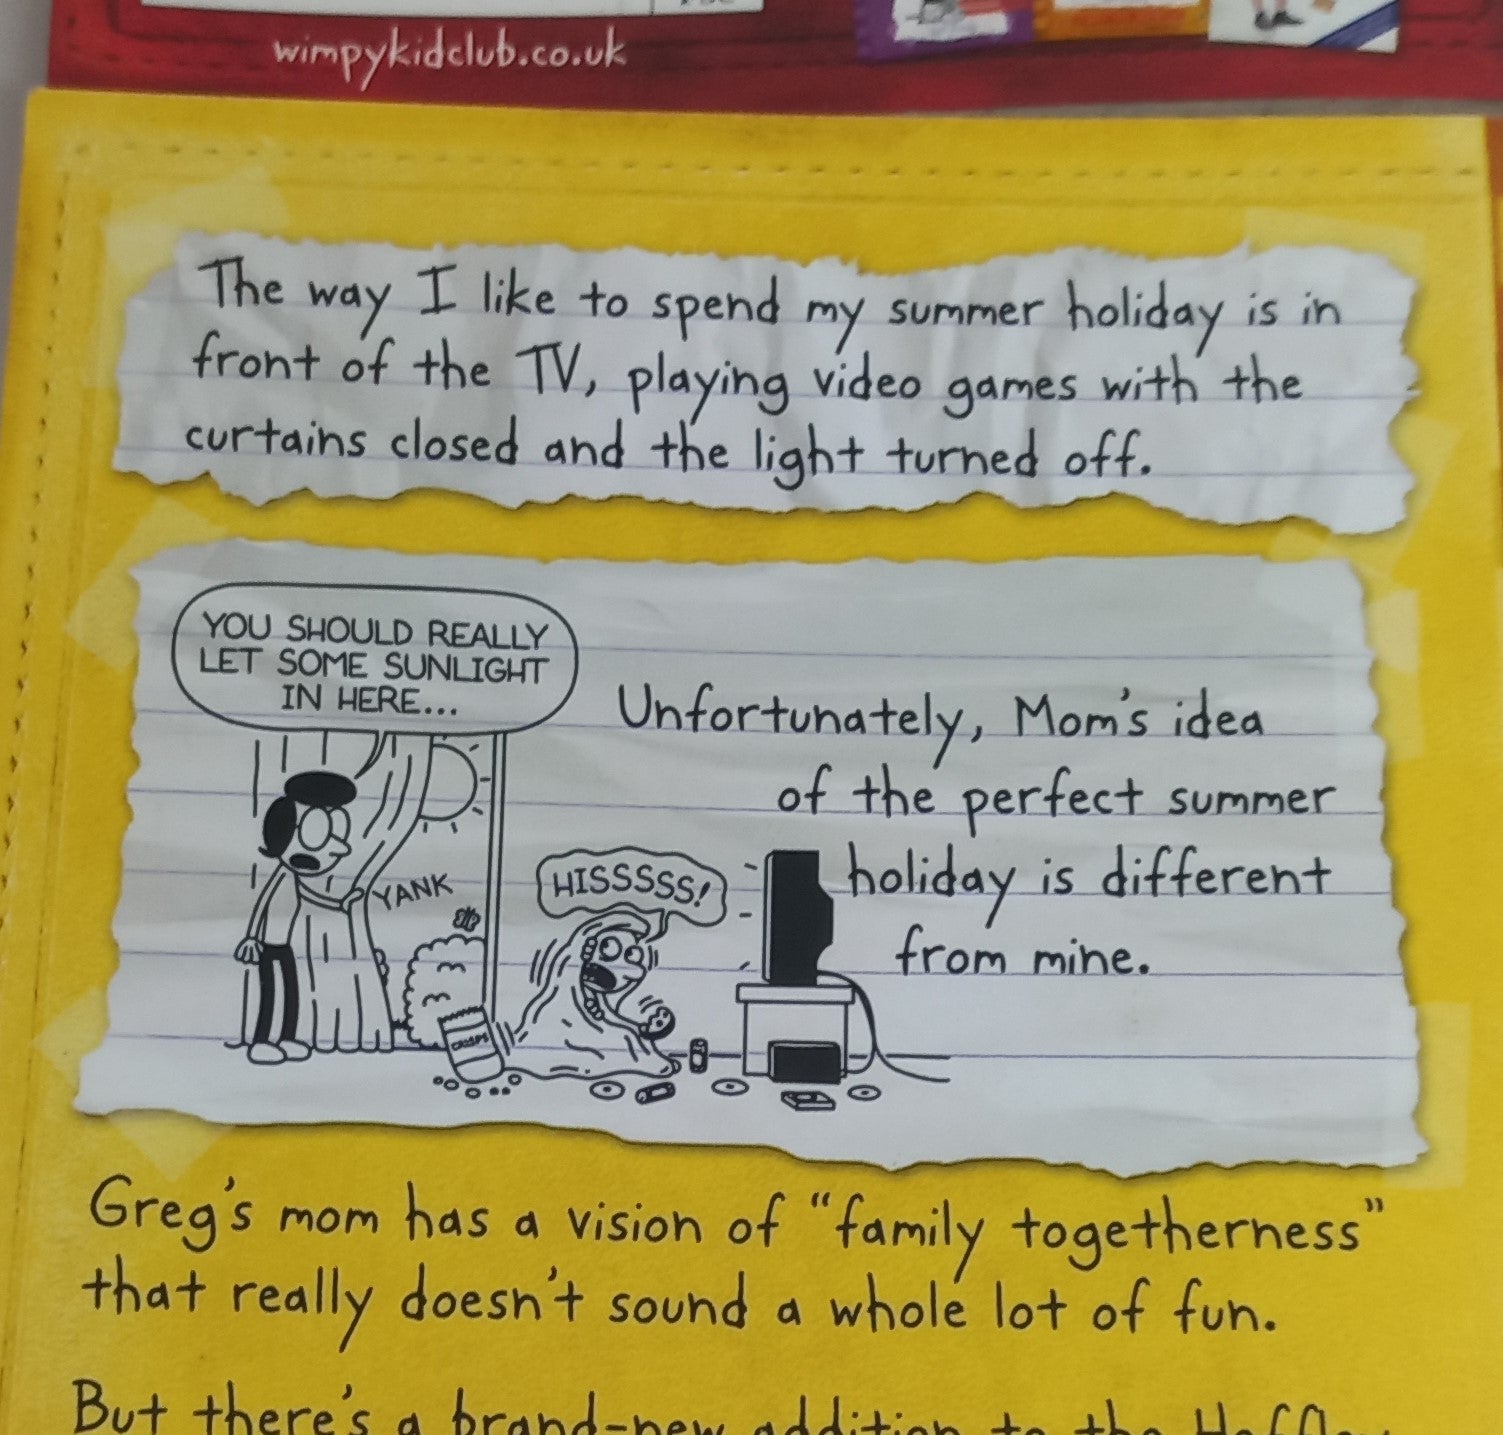 wimpykidclub.co.uk
The way I like to spend my summer holiday is in
front of the TV, playing video games with the
curtains closed and the light turned off.
YOU SHOULD REALLY
LET SOME SUNLIGHT
IN HERE...
Unfortunately, Mom's idea
of the perfect summer
holiday is different
from mine.
YANK
HISSSSS!
CRISPS
Greg's mom has a vision of "family togetherness"
that really doesn't sound a whole lot of fun.
But there's a brand-new addition to the Heffley